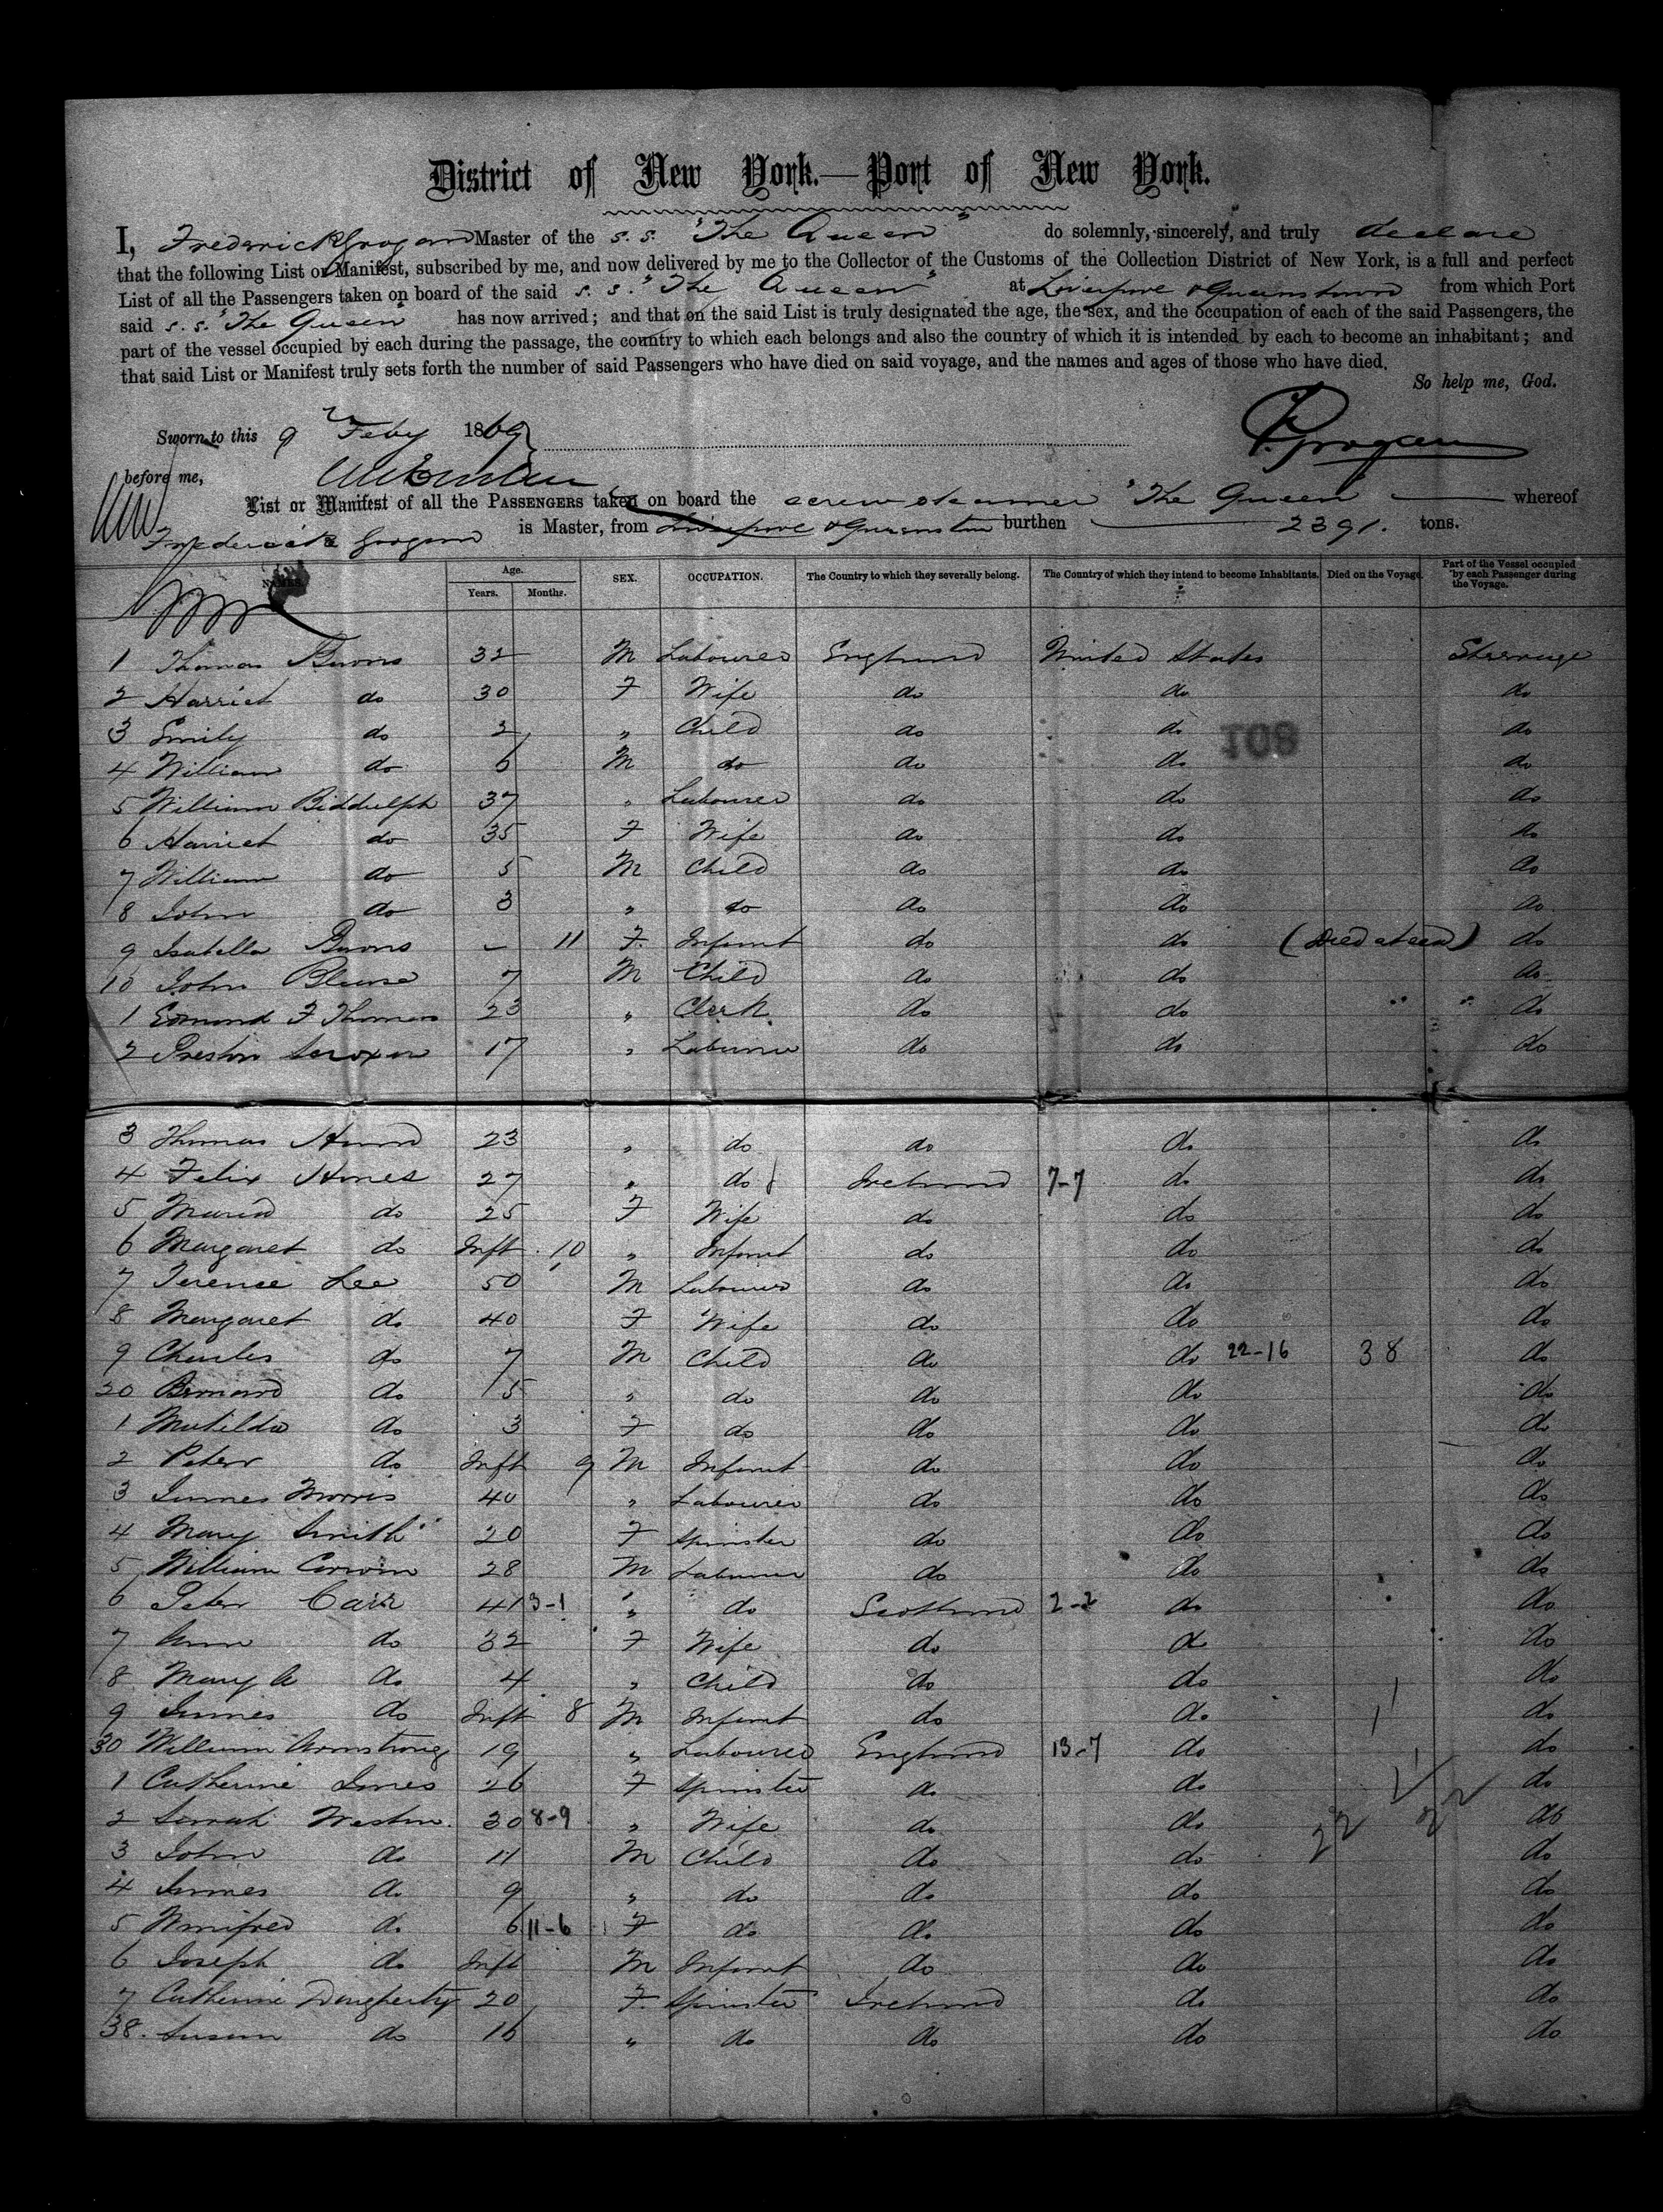 District of New York.—Port of New York.
I, Frederick Grogan Master of the s.s. "The Queen" do solemnly, sincerely, and truly declare
that the following List or Manifest, subscribed by me, and now delivered by me to the Collector of the Customs of the Collection District of New York, is a full and perfect
List of all the Passengers taken on board of the said s.s. "The Queen" at Liverpool & Queenstown from which Port
said s.s. "The Queen" has now arrived; and that on the said List is truly designated the age, the sex, and the occupation of each of the said Passengers, the
part of the vessel occupied by each during the passage, the country to which each belongs and also the country of which it is intended by each to become an inhabitant; and
that said List or Manifest truly sets forth the number of said Passengers who have died on said voyage, and the names and ages of those who have died.
So help me, God.
Sworn to this 9 Feby 1869
F. Grogan
before me,
List or Manifest of all the PASSENGERS taken on board the screw steamer "The Queen" whereof
Frederick Grogan is Master, from Liverpool & Queenstown burthen 2391. tons.
NAMES. Age. Years. Months. SEX. OCCUPATION. The Country to which they severally belong. The Country of which they intend to become Inhabitants. Died on the Voyage. Part of the Vessel occupied by each Passenger during the Voyage.
1 Thomas Burns 32 M Labourer England United States Steerage
2 Harriet do 30 F Wife do do do
3 Emily do 2 " Child do do do
108
4 William do 6 M do do do do
5 William Biddulph 37 " Labourer do do do
6 Harriet do 35 F Wife do do do
7 William do 5 M Child do do do
8 John do 3 " do do do do
9 Isabella Burns - 11 F. Infant do do (Died at sea) do
10 John 7 M Child do do do
1 Edmond F Thomas 23 " Clerk do do " " do
2 Preston 17 " Labourer do do do
3 Thomas 23 " do do do do
4 Felix 27 " do Ireland 7-7 do do
5 Maria do 25 F Wife do do do
6 Margaret do Inft 10 " Infant do do do
7 Terence Lee 50 M Labourer do do do
8 Margaret do 40 F Wife do do do
9 Charles do 7 M Child do do 22-16 38 do
20 Bernard do 5 " do do do do
1 Matilda do 3 F do do do do
2 Peter do Inft 9 M Infant do do do
3 James Morris 40 " Labourer do do do
4 Mary Smith 20 F Spinster do do do
5 William 28 M Labourer do do do
6 Peter Carr 41 3-1 " do Scotland 2-2 do do
7 Ann do 32 F Wife do do do
8 Mary A do 4 " Child do do do
9 James do Inft 8 M Infant do do do
30 William Armstrong 19 " Labourer England 13-7 do do
1 Catherine Jones 26 F Spinster do do do
2 Sarah Weston. 30 8-9 " Wife do do do
3 John do 11 M Child do do 22 22 do
4 James do 9 " do do do do
5 Winifred do 6 11-6 F do do do do
6 Joseph do Inft M Infant do do do
7 Catherine Dougherty 20 F. Spinster Ireland do do
38. Susan do 16 " do do do do